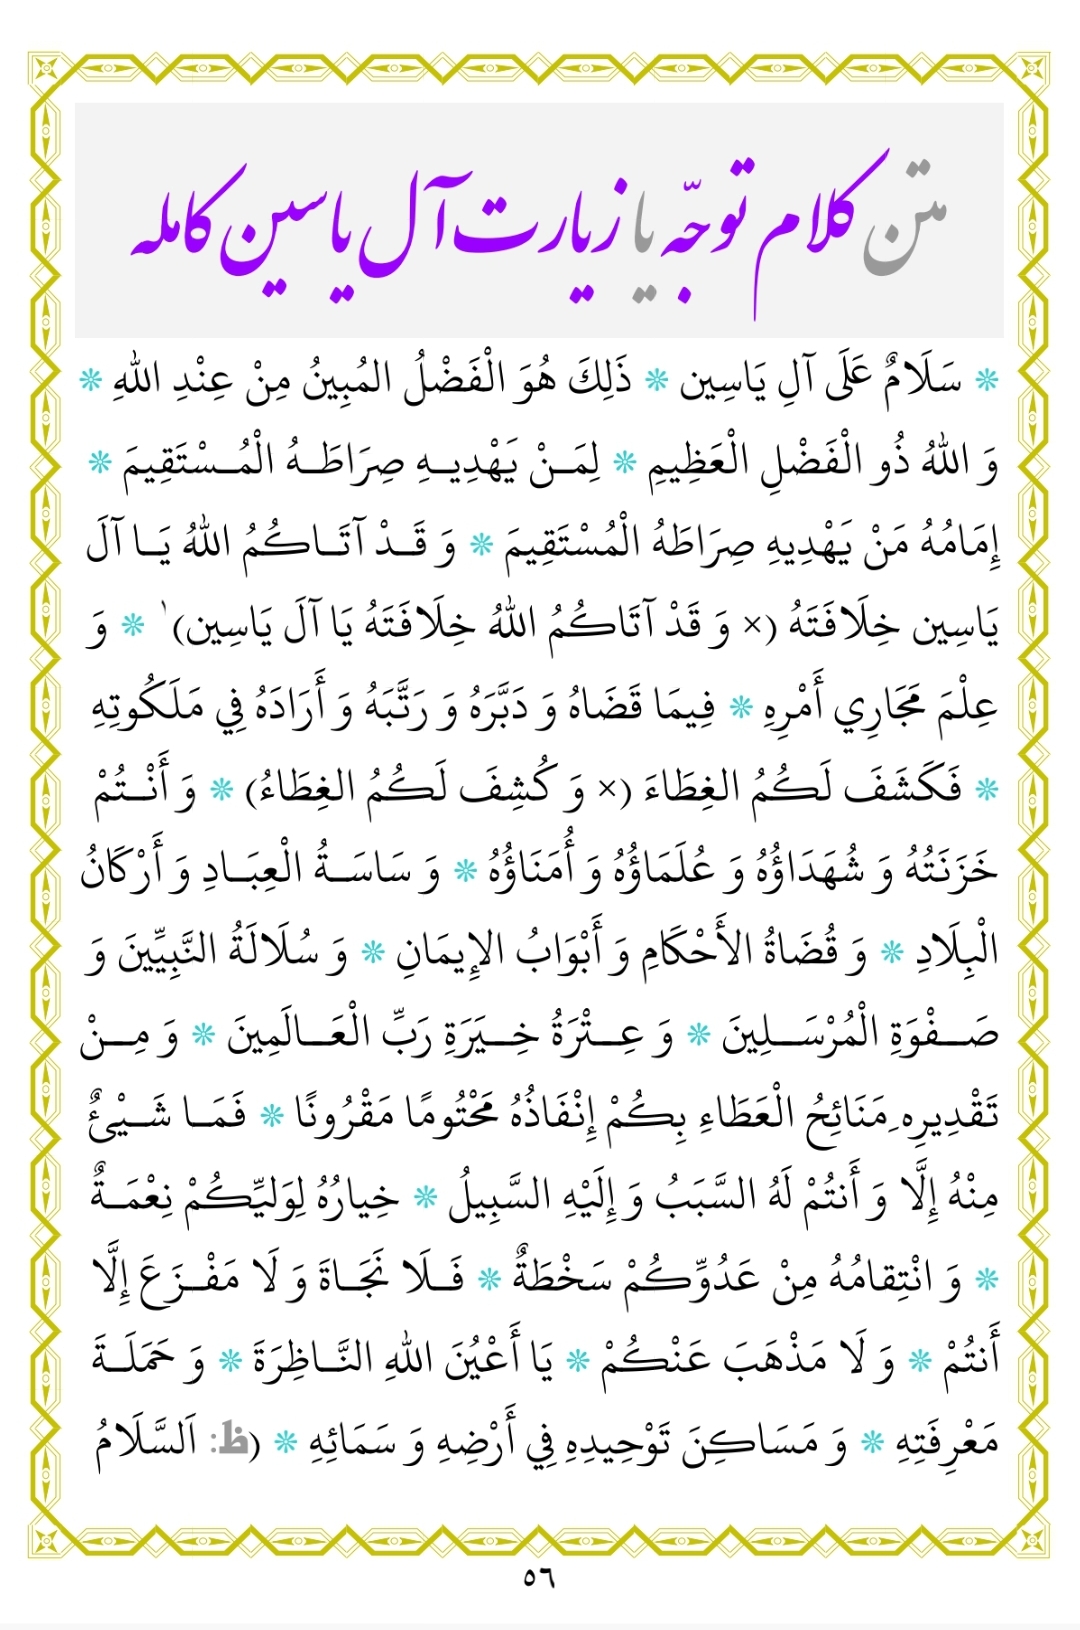 متن کلام توجّه یا زیارت آل یاسین کامله
* سَلَامٌ عَلَى آلِ يَاسِين * ذَلِكَ هُوَ الْفَضْلُ المُبِينُ مِنْ عِنْدِ اللهِ *
وَ اللهُ ذُو الْفَضْلِ الْعَظِيمِ * لِمَنْ يَهْدِيهِ صِرَاطَهُ الْمُسْتَقِيمَ *
إِمَامُهُ مَنْ يَهْدِيهِ صِرَاطَهُ الْمُسْتَقِيمَ * وَ قَدْ آتَاكُمُ اللهُ يَا آلَ
يَاسِين خِلَافَتَهُ (× وَ قَدْ آتَاكُمُ اللهُ خِلَافَتَهُ يَا آلَ يَاسِين)١ * وَ
عِلْمَ مَجَارِي أَمْرِهِ * فِيمَا قَضَاهُ وَ دَبَّرَهُ وَ رَتَّبَهُ وَ أَرَادَهُ فِي مَلَكُوتِهِ
* فَكَشَفَ لَكُمُ الغِطَاءَ (× وَ كُشِفَ لَكُمُ الغِطَاءُ) * وَ أَنْتُمْ
خَزَنَتُهُ وَ شُهَدَاؤُهُ وَ عُلَمَاؤُهُ وَ أُمَنَاؤُهُ * وَ سَاسَةُ الْعِبَادِ وَ أَرْكَانُ
الْبِلَادِ * وَ قُضَاةُ الأَحْكَامِ وَ أَبْوَابُ الإِيمَانِ * وَ سُلَالَةُ النَّبِيِّينَ وَ
صَفْوَةِ الْمُرْسَلِينَ * وَ عِتْرَةُ خِيَرَةِ رَبِّ الْعَالَمِينَ * وَ مِنْ
تَقْدِيرِهِ مَنَائِحُ الْعَطَاءِ بِكُمْ إِنْفَاذُهُ مَحْتُومًا مَقْرُونًا * فَمَا شَيْئٌ
مِنْهُ إِلَّا وَ أَنتُمْ لَهُ السَّبَبُ وَ إِلَيْهِ السَّبِيلُ * خِيارُهُ لِوَلِيِّكُمْ نِعْمَةٌ
* وَ انْتِقامُهُ مِنْ عَدُوِّكُمْ سَخْطَةٌ * فَلَا نَجَاةَ وَ لَا مَفْزَعَ إِلَّا
أَنتُمْ * وَ لَا مَذْهَبَ عَنْكُمْ * يَا أَعْيُنَ اللهِ النَّاظِرَةَ * وَ حَمَلَةَ
مَعْرِفَتِهِ * وَ مَسَاكِنَ تَوْحِيدِهِ فِي أَرْضِهِ وَ سَمَائِهِ * (ظ: اَلسَّلَامُ
٥٦